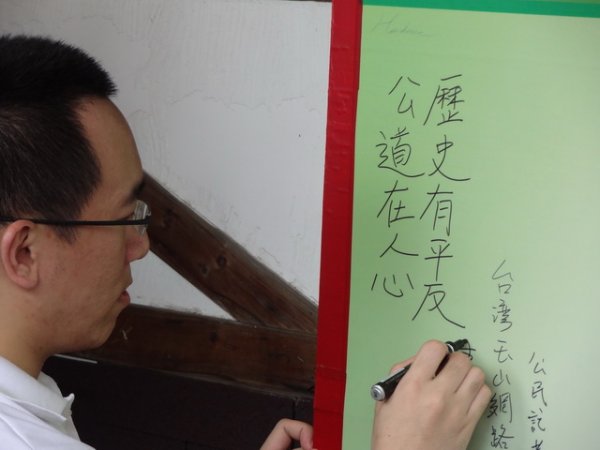 公民記者
台湾玉山網路
歷史有平反
公道在人心